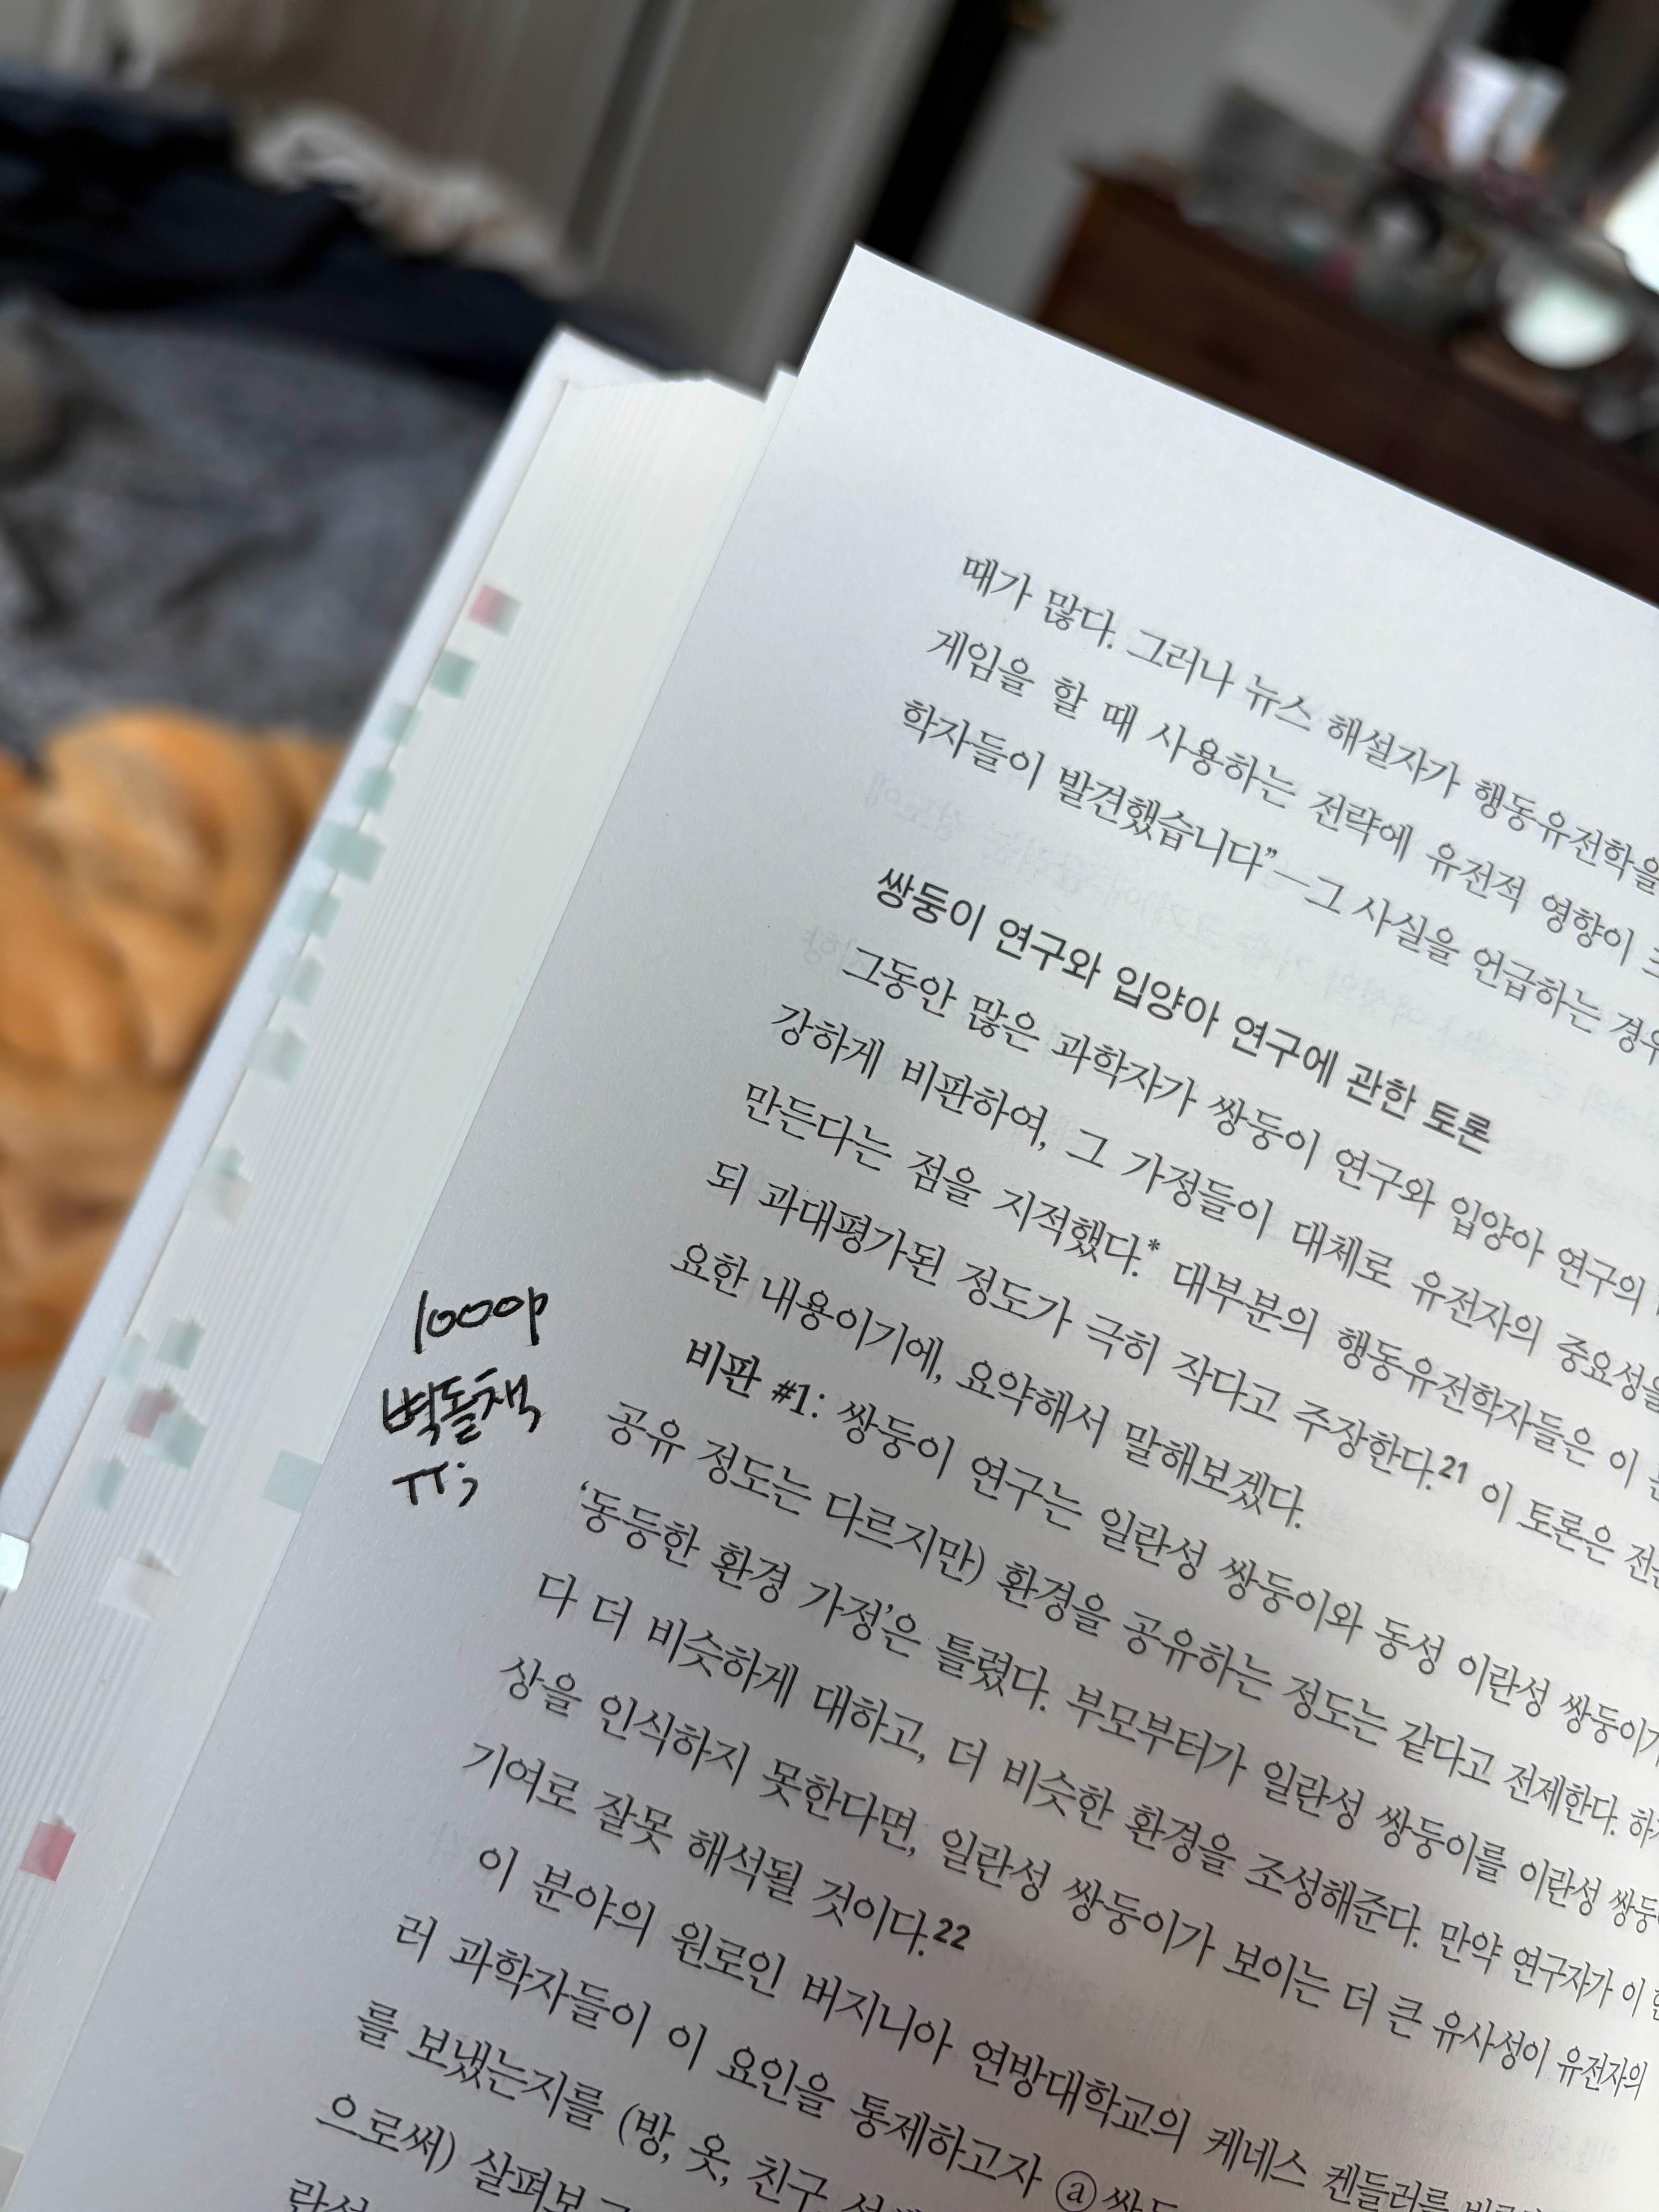 때가 많다. 그러나 뉴스 해설자가 행동유전학을
게임을 할 때 사용하는 전략에 유전적 영향이
학자들이 발견했습니다”—그 사실을 언급하는 경우
쌍둥이 연구와 입양아 연구에 관한 토론
그동안 많은 과학자가 쌍둥이 연구와 입양아 연구의
강하게 비판하여, 그 가정들이 대체로 유전자의 중요성을
만든다는 점을 지적했다.* 대부분의 행동유전학자들은 이
되 과대평가된 정도가 극히 작다고 주장한다.21 이 토론은
요한 내용이기에, 요약해서 말해보겠다.
비판 #1: 쌍둥이 연구는 일란성 쌍둥이와 동성 이란성 쌍둥이가
공유 정도는 다르지만) 환경을 공유하는 정도는 같다고 전제한다.
‘동등한 환경 가정’은 틀렸다. 부모부터가 일란성 쌍둥이를 이란성
다 더 비슷하게 대하고, 더 비슷한 환경을 조성해준다. 만약 연구자가 이
상을 인식하지 못한다면, 일란성 쌍둥이가 보이는 더 큰 유사성이 유전자의
기여로 잘못 해석될 것이다.22
이 분야의 원로인 버지니아 연방대학교의 케네스 켄들러를
러 과학자들이 이 요인을 통제하고자 ⓐ
를 보냈는지를 (방, 옷, 친구
으로써)
1000p
벽돌책
ㅠ;